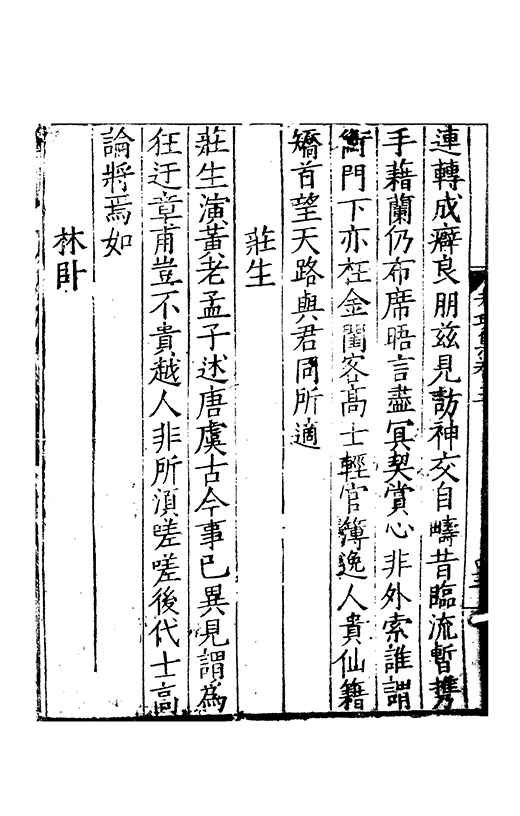 連轉成癖良朋兹見訪神交自疇昔臨流暫携
手藉蘭仍布席晤言盡冥契賞心非外索誰謂
衡門下亦枉金閨客高士輕官簿逸人貴仙籍
矯首望天路與君同所適
莊生
莊生演黃老孟子述唐虞古今事已異見謂為
狂迂章甫豈不貴越人非所湏嗟嗟後代士高
論將焉如
林卧